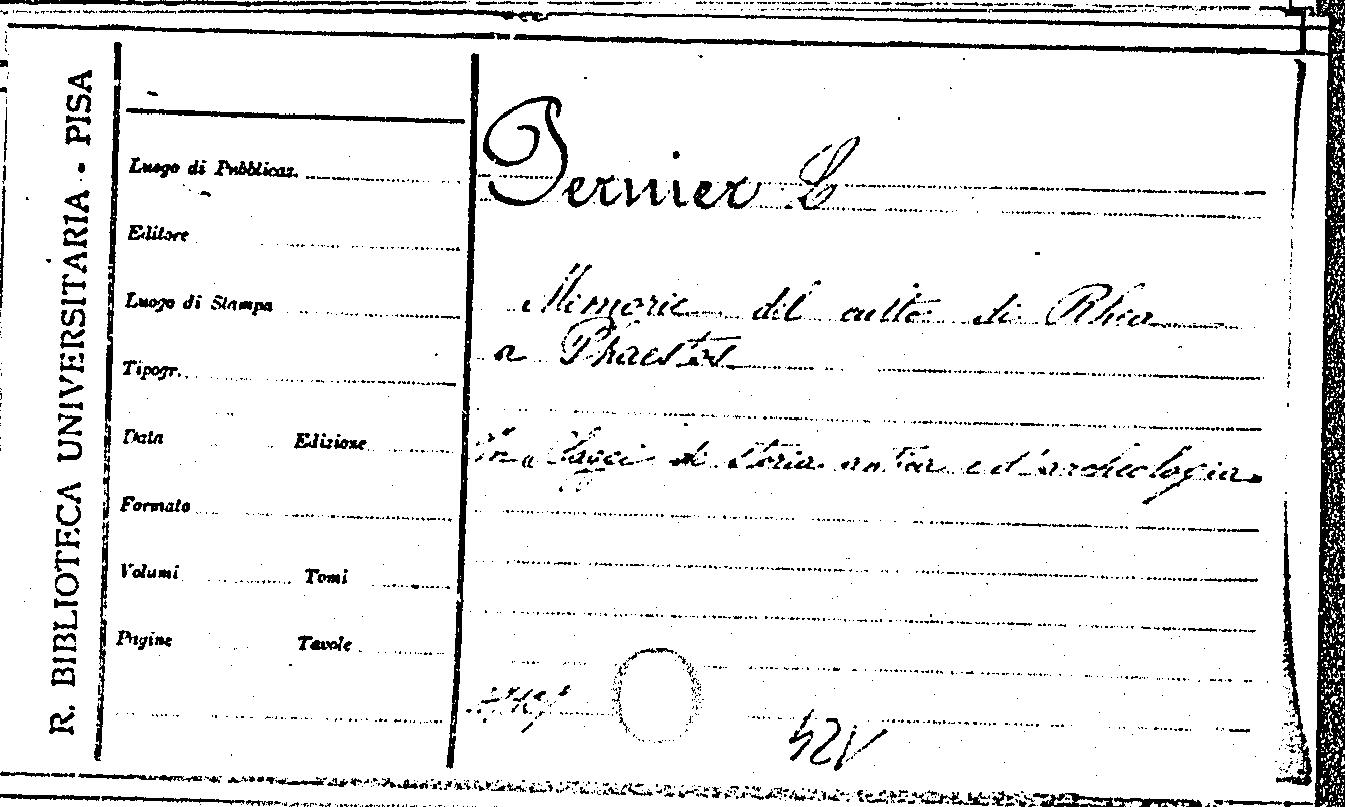 R. BIBLIOTECA UNIVERSITARIA - PISA
Luogo di Pubblicaz.
Editore
Luogo di Stampa
Tipogr.
Data Edizione
Formato
Volumi Tomi
Pagine Tavole
Pernier L
Memorie del culto di Rhea
a Phaestos
In "Saggi di Storia antica e d'archeologia